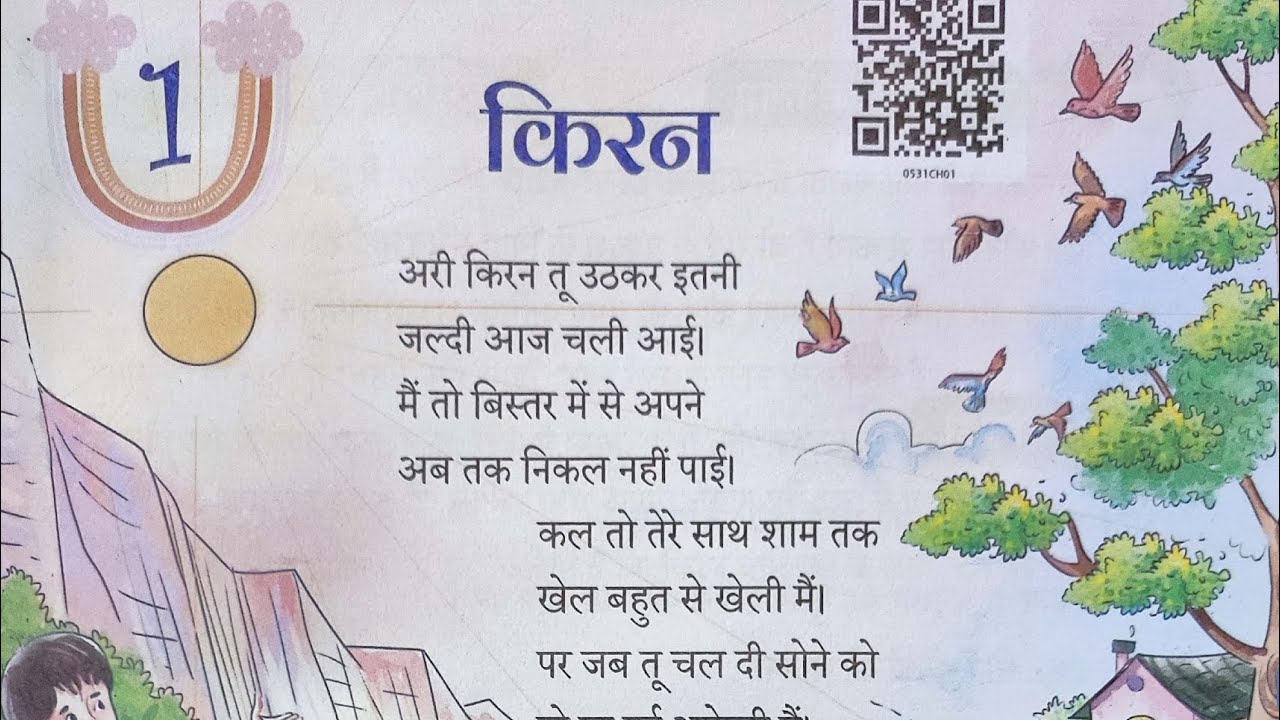 1
किरन
0531CH01
अरी किरन तू उठकर इतनी
जल्दी आज चली आई।
मैं तो बिस्तर में से अपने
अब तक निकल नहीं पाई।
कल तो तेरे साथ शाम तक
खेल बहुत से खेली मैं।
पर जब तू चल दी सोने को